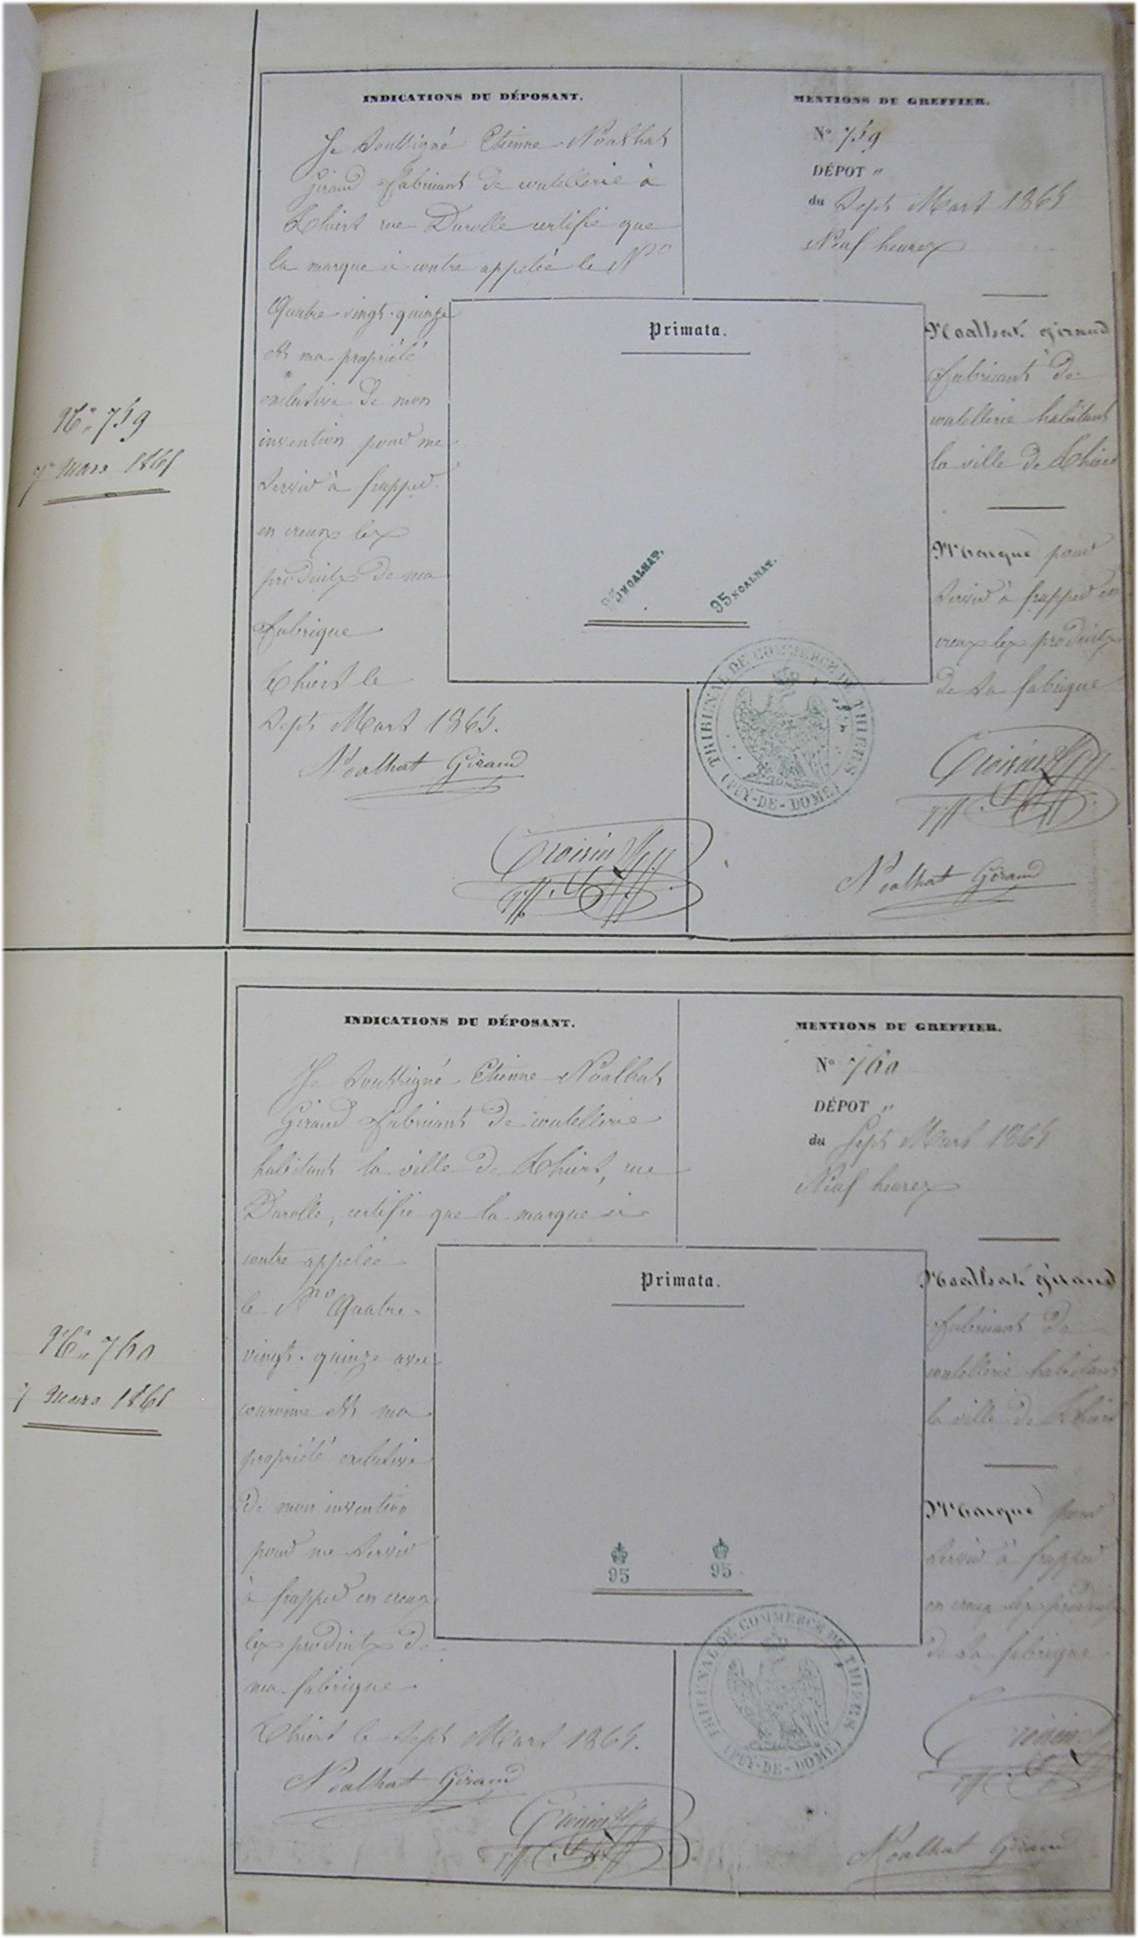 INDICATIONS DU DÉPOSANT.
Je soussigné Etienne Noalhat
Giraud fabricant de coutellerie à
Thiers rue Durolle certifie que
la marque ci contre appelée le Nro
Quatre-vingt-quinze
est ma propriété
exclusive de mon
invention pour me
servir à frapper
en creux les
produits de ma
fabrique
Thiers le
sept Mars 1865.
Noalhat Giraud
MENTIONS DU GREFFIER.
N° 759
DÉPOT "
du sept Mars 1865
Neuf heures
Noalhat Giraud
fabricant de
coutellerie habitant
la ville de Thiers
Marque pour
servir à frapper en
creux les produits
de sa fabrique
Noalhat Giraud
Primata.
95 NOALHAT.
95 NOALHAT.
TRIBUNAL DE COMMERCE DE THIERS
(PUY-DE-DOME)
N° 759
7 mars 1865
INDICATIONS DU DÉPOSANT.
Je soussigné Etienne Noalhat
Giraud fabricant de coutellerie
habitant la ville de Thiers, rue
Durolle, certifie que la marque ci
contre appelée
le Nro Quatre-
vingt-quinze avec
couronne est ma
propriété exclusive
de mon invention
pour me servir
à frapper en creux
les produits de
ma fabrique
Thiers le sept Mars 1865.
Noalhat Giraud
MENTIONS DU GREFFIER.
N° 760
DÉPOT "
du sept Mars 1865
Neuf heures
Noalhat Giraud
fabricant de
coutellerie habitant
la ville de Thiers
Marque pour
servir à frapper
en creux les produits
de sa fabrique
Noalhat Giraud
Primata.
95
95
TRIBUNAL DE COMMERCE DE THIERS
(PUY-DE-DOME)
N° 760
7 mars 1865